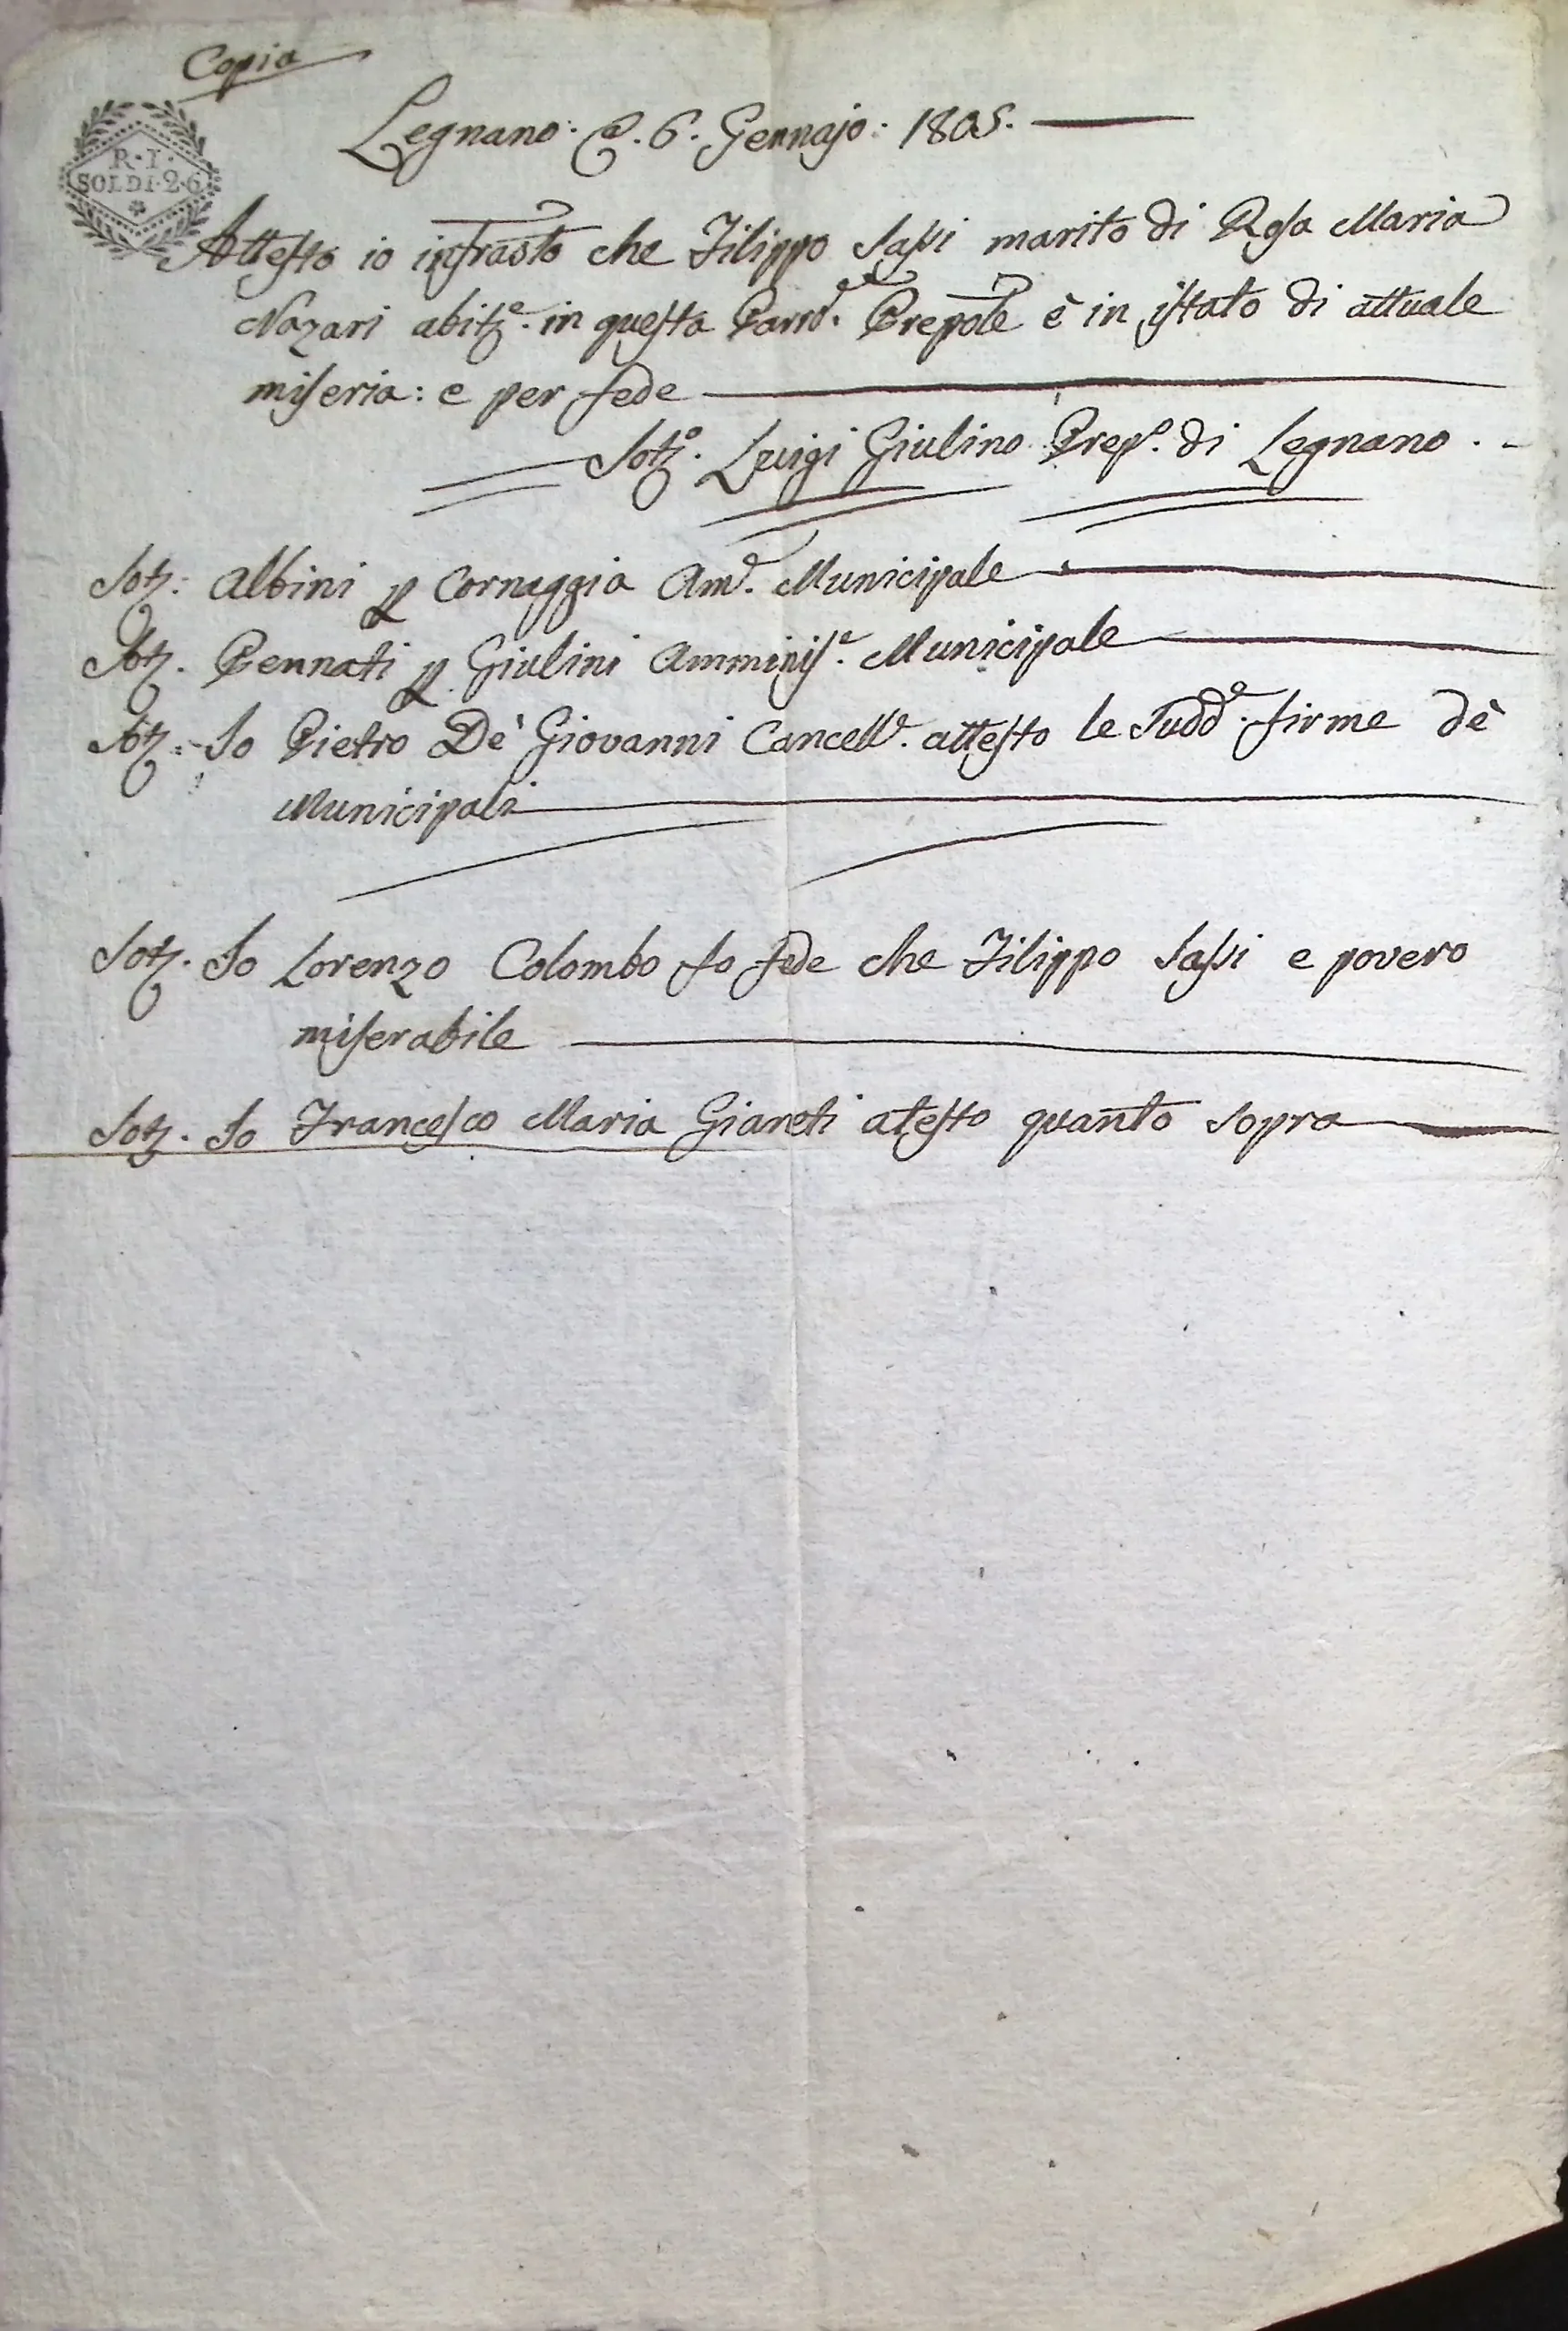 Copia
Legnano. @. 6. Gennajo. 1805.
R. I.
SOLDI. 2. 6
Attesto io infrãtto che Filippo Sassi marito di Rosa Maria
Nazari abitᵉ. in questa Prepõle è in istato di attuale
miseria: e per fede
Sottº. Luigi Giulino Prepº. di Legnano.
Sott: Albini p Cornaggia Amᵉ. Municipale
Sott. Pennati p Giulini Amminisᵉ. Municipale
Sott. Io Pietro De' Giovanni Cancellᵉ. attesto le Suddᵉ. firme dè
Municipali
Sott. Io Lorenzo Colombo fo fede che Filippo Sassi e povero
miserabile
Sott. Io Francesco Maria Giareti atesto quanto sopra